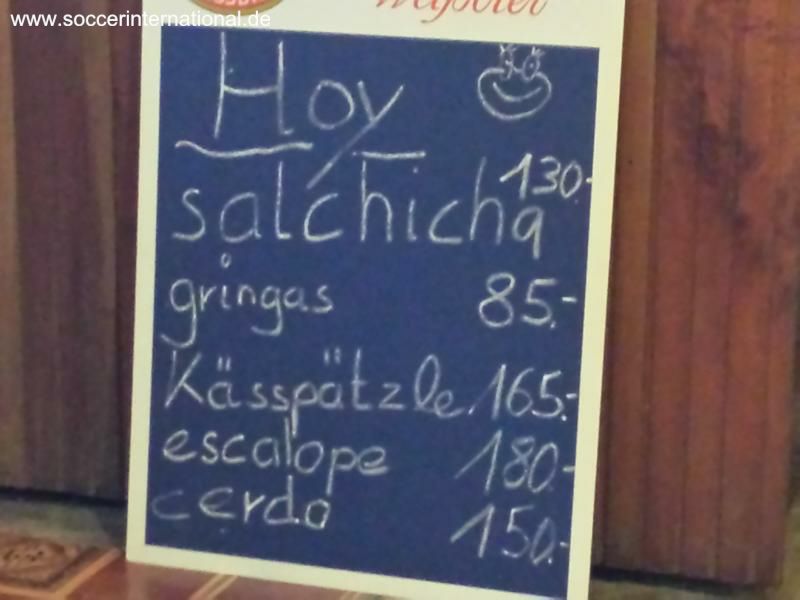 www.soccerinternational.de
Hoy
salchicha 130.-
gringas 85.-
Kässpätzle 165.-
escalope 180.-
cerdo 150.-